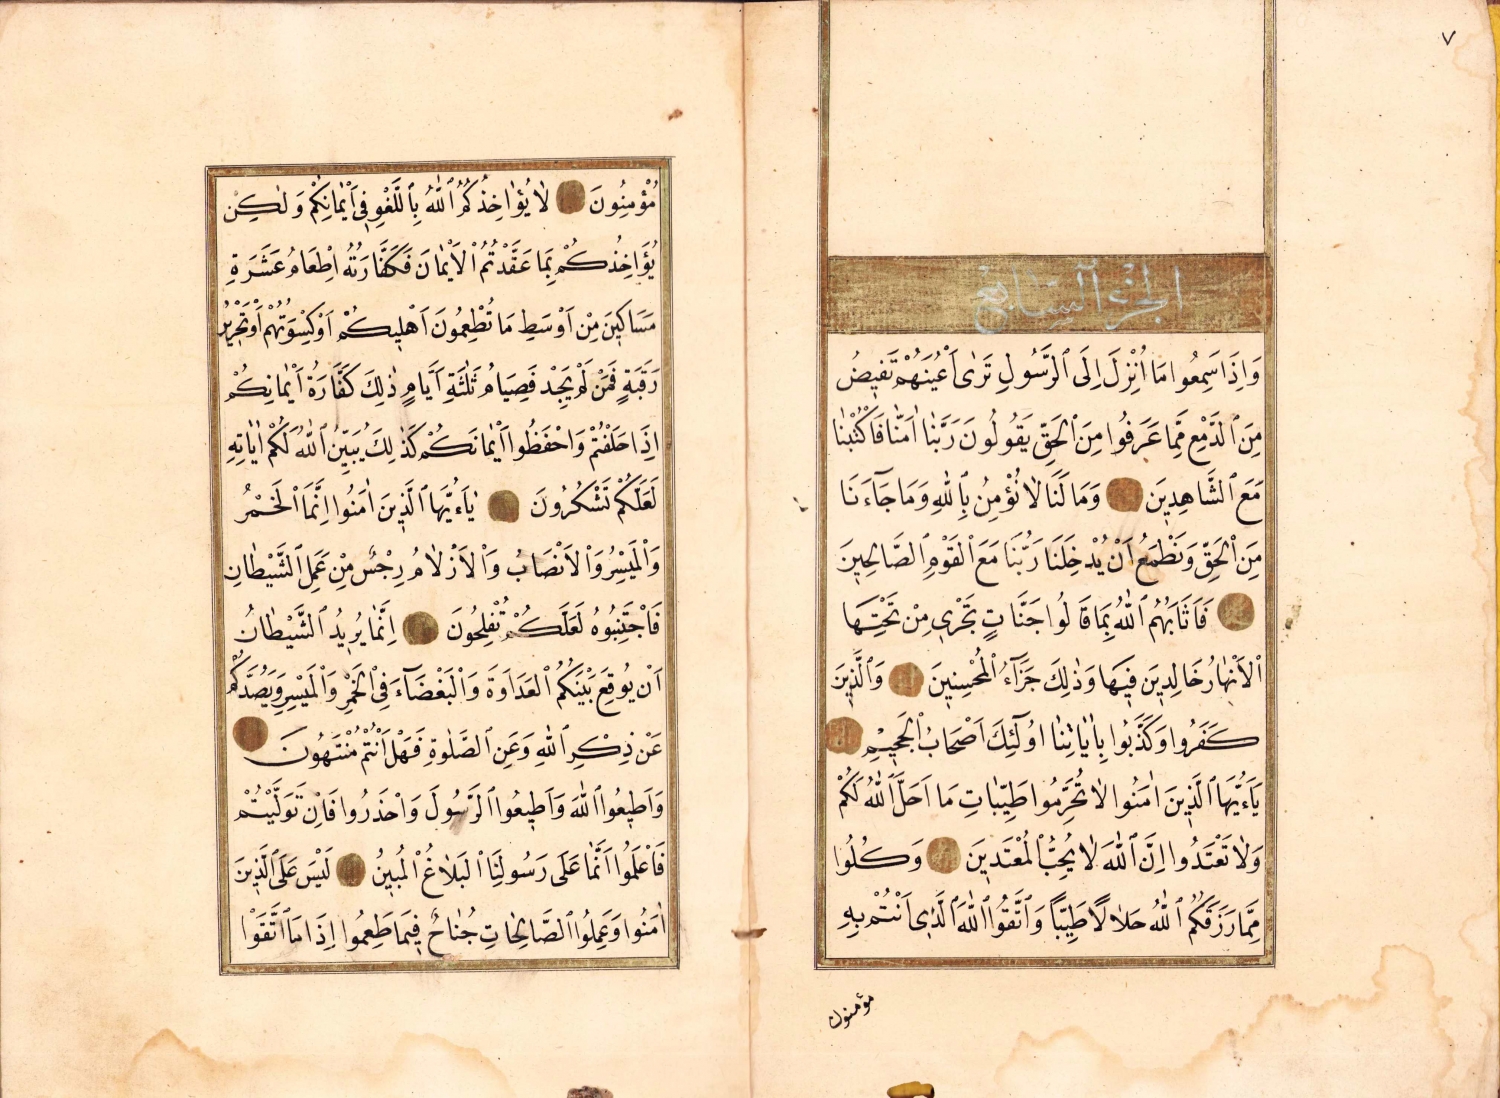 ٧
الجزء السابع
وَاِذَا سَمِعُوا مَا اُنْزِلَ اِلَى الرَّسُولِ تَرٰى اَعْيُنَهُمْ تَفيِضُ
مِنَ الدَّمْعِ مِمَّا عَرَفُوا مِنَ الْحَقِّ يَقُولُونَ رَبَّنَا اٰمَنَّا فَاكْتُبْنَا
مَعَ الشَّاهِدِينَ وَمَا لَنَا لَا نُؤْمِنُ بِاللّٰهِ وَمَا جَآءَنَا
مِنَ الْحَقِّ وَنَطْمَعُ اَنْ يُدْخِلَنَا رَبُّنَا مَعَ الْقَوْمِ الصَّالِحِينَ
فَاَثَابَهُمُ اللّٰهُ بِمَا قَالُوا جَنَّاتٍ تَجْرِي مِنْ تَحْتِهَا
الْاَنْهَارُ خَالِدِينَ فِيهَا وَذٰلِكَ جَزَآءُ الْمُحْسِنِينَ وَالَّذِينَ
كَفَرُوا وَكَذَّبُوا بِاٰيَاتِنَا اُولٰٓئِكَ اَصْحَابُ الْجَحِيمِ
يَآءَيُّهَا الَّذِينَ اٰمَنُوا لَا تُحَرِّمُوا طَيِّبَاتِ مَا اَحَلَّ اللّٰهُ لَكُمْ
وَلَا تَعْتَدُوا اِنَّ اللّٰهَ لَا يُحِبُّ الْمُعْتَدِينَ وَكُلُوا
مِمَّا رَزَقَكُمُ اللّٰهُ حَلَالًا طَيِّبًا وَاتَّقُوا اللّٰهَ الَّذِي اَنْتُمْ بِهِ
مؤمنون
مُؤْمِنُونَ لَا يُؤَاخِذُكُمُ اللّٰهُ بِاللَّغْوِ فِي اَيْمَانِكُمْ وَلٰكِنْ
يُؤَاخِذُكُمْ بِمَا عَقَّدْتُمُ الْاَيْمَانَ فَكَفَّارَتُهُ اِطْعَامُ عَشَرَةِ
مَسَاكِينَ مِنْ اَوْسَطِ مَا تُطْعِمُونَ اَهْلِيكُمْ اَوْ كِسْوَتُهُمْ اَوْ تَحْرِيرُ
رَقَبَةٍ فَمَنْ لَمْ يَجِدْ فَصِيَامُ ثَلٰثَةِ اَيَّامٍ ذٰلِكَ كَفَّارَةُ اَيْمَانِكُمْ
اِذَا حَلَفْتُمْ وَاحْفَظُوا اَيْمَانَكُمْ كَذٰلِكَ يُبَيِّنُ اللّٰهُ لَكُمْ اٰيَاتِهِ
لَعَلَّكُمْ تَشْكُرُونَ يَآءَيُّهَا الَّذِينَ اٰمَنُوا اِنَّمَا الْخَمْرُ
وَالْمَيْسِرُ وَالْاَنْصَابُ وَالْاَزْلَامُ رِجْسٌ مِنْ عَمَلِ الشَّيْطَانِ
فَاجْتَنِبُوهُ لَعَلَّكُمْ تُفْلِحُونَ اِنَّمَا يُرِيدُ الشَّيْطَانُ
اَنْ يُوقِعَ بَيْنَكُمُ الْعَدَاوَةَ وَالْبَغْضَآءَ فِي الْخَمْرِ وَالْمَيْسِرِ وَيَصُدَّكُمْ
عَنْ ذِكْرِ اللّٰهِ وَعَنِ الصَّلٰوةِ فَهَلْ اَنْتُمْ مُنْتَهُونَ
وَاَطِيعُوا اللّٰهَ وَاَطِيعُوا الرَّسُولَ وَاحْذَرُوا فَاِنْ تَوَلَّيْتُمْ
فَاعْلَمُوا اَنَّمَا عَلَى رَسُولِنَا الْبَلَاغُ الْمُبِينُ لَيْسَ عَلَى الَّذِينَ
اٰمَنُوا وَعَمِلُوا الصَّالِحَاتِ جُنَاحٌ فِيمَا طَعِمُوا اِذَا مَا اتَّقَوْا